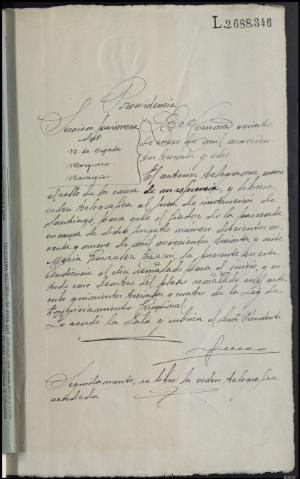 L.2688.346
Providencia
Sección primera
La Coruña veinte
de enero de mil novecien
tos treinta y ocho
El anterior telegrama, una
al rollo de la causa de su referencia, y líbrese
orden telegráfica al Juez de instrucción de
Santiago, para que el fiador de la procesada
en causa de dicho Juzgado número doscientos no
venta y nueve de mil novecientos treinta y siete
María González la presente en esta
Audiencia el día señalado para el juicio, y en
todo caso dentro del plazo señalado en el artí
culo quinientos treinta y cuatro de la Ley de
Enjuiciamiento Criminal.
Lo acordó la Sala y rubrica el señor Presidente
Seguidamente, se libra la orden telegráfica
acordada